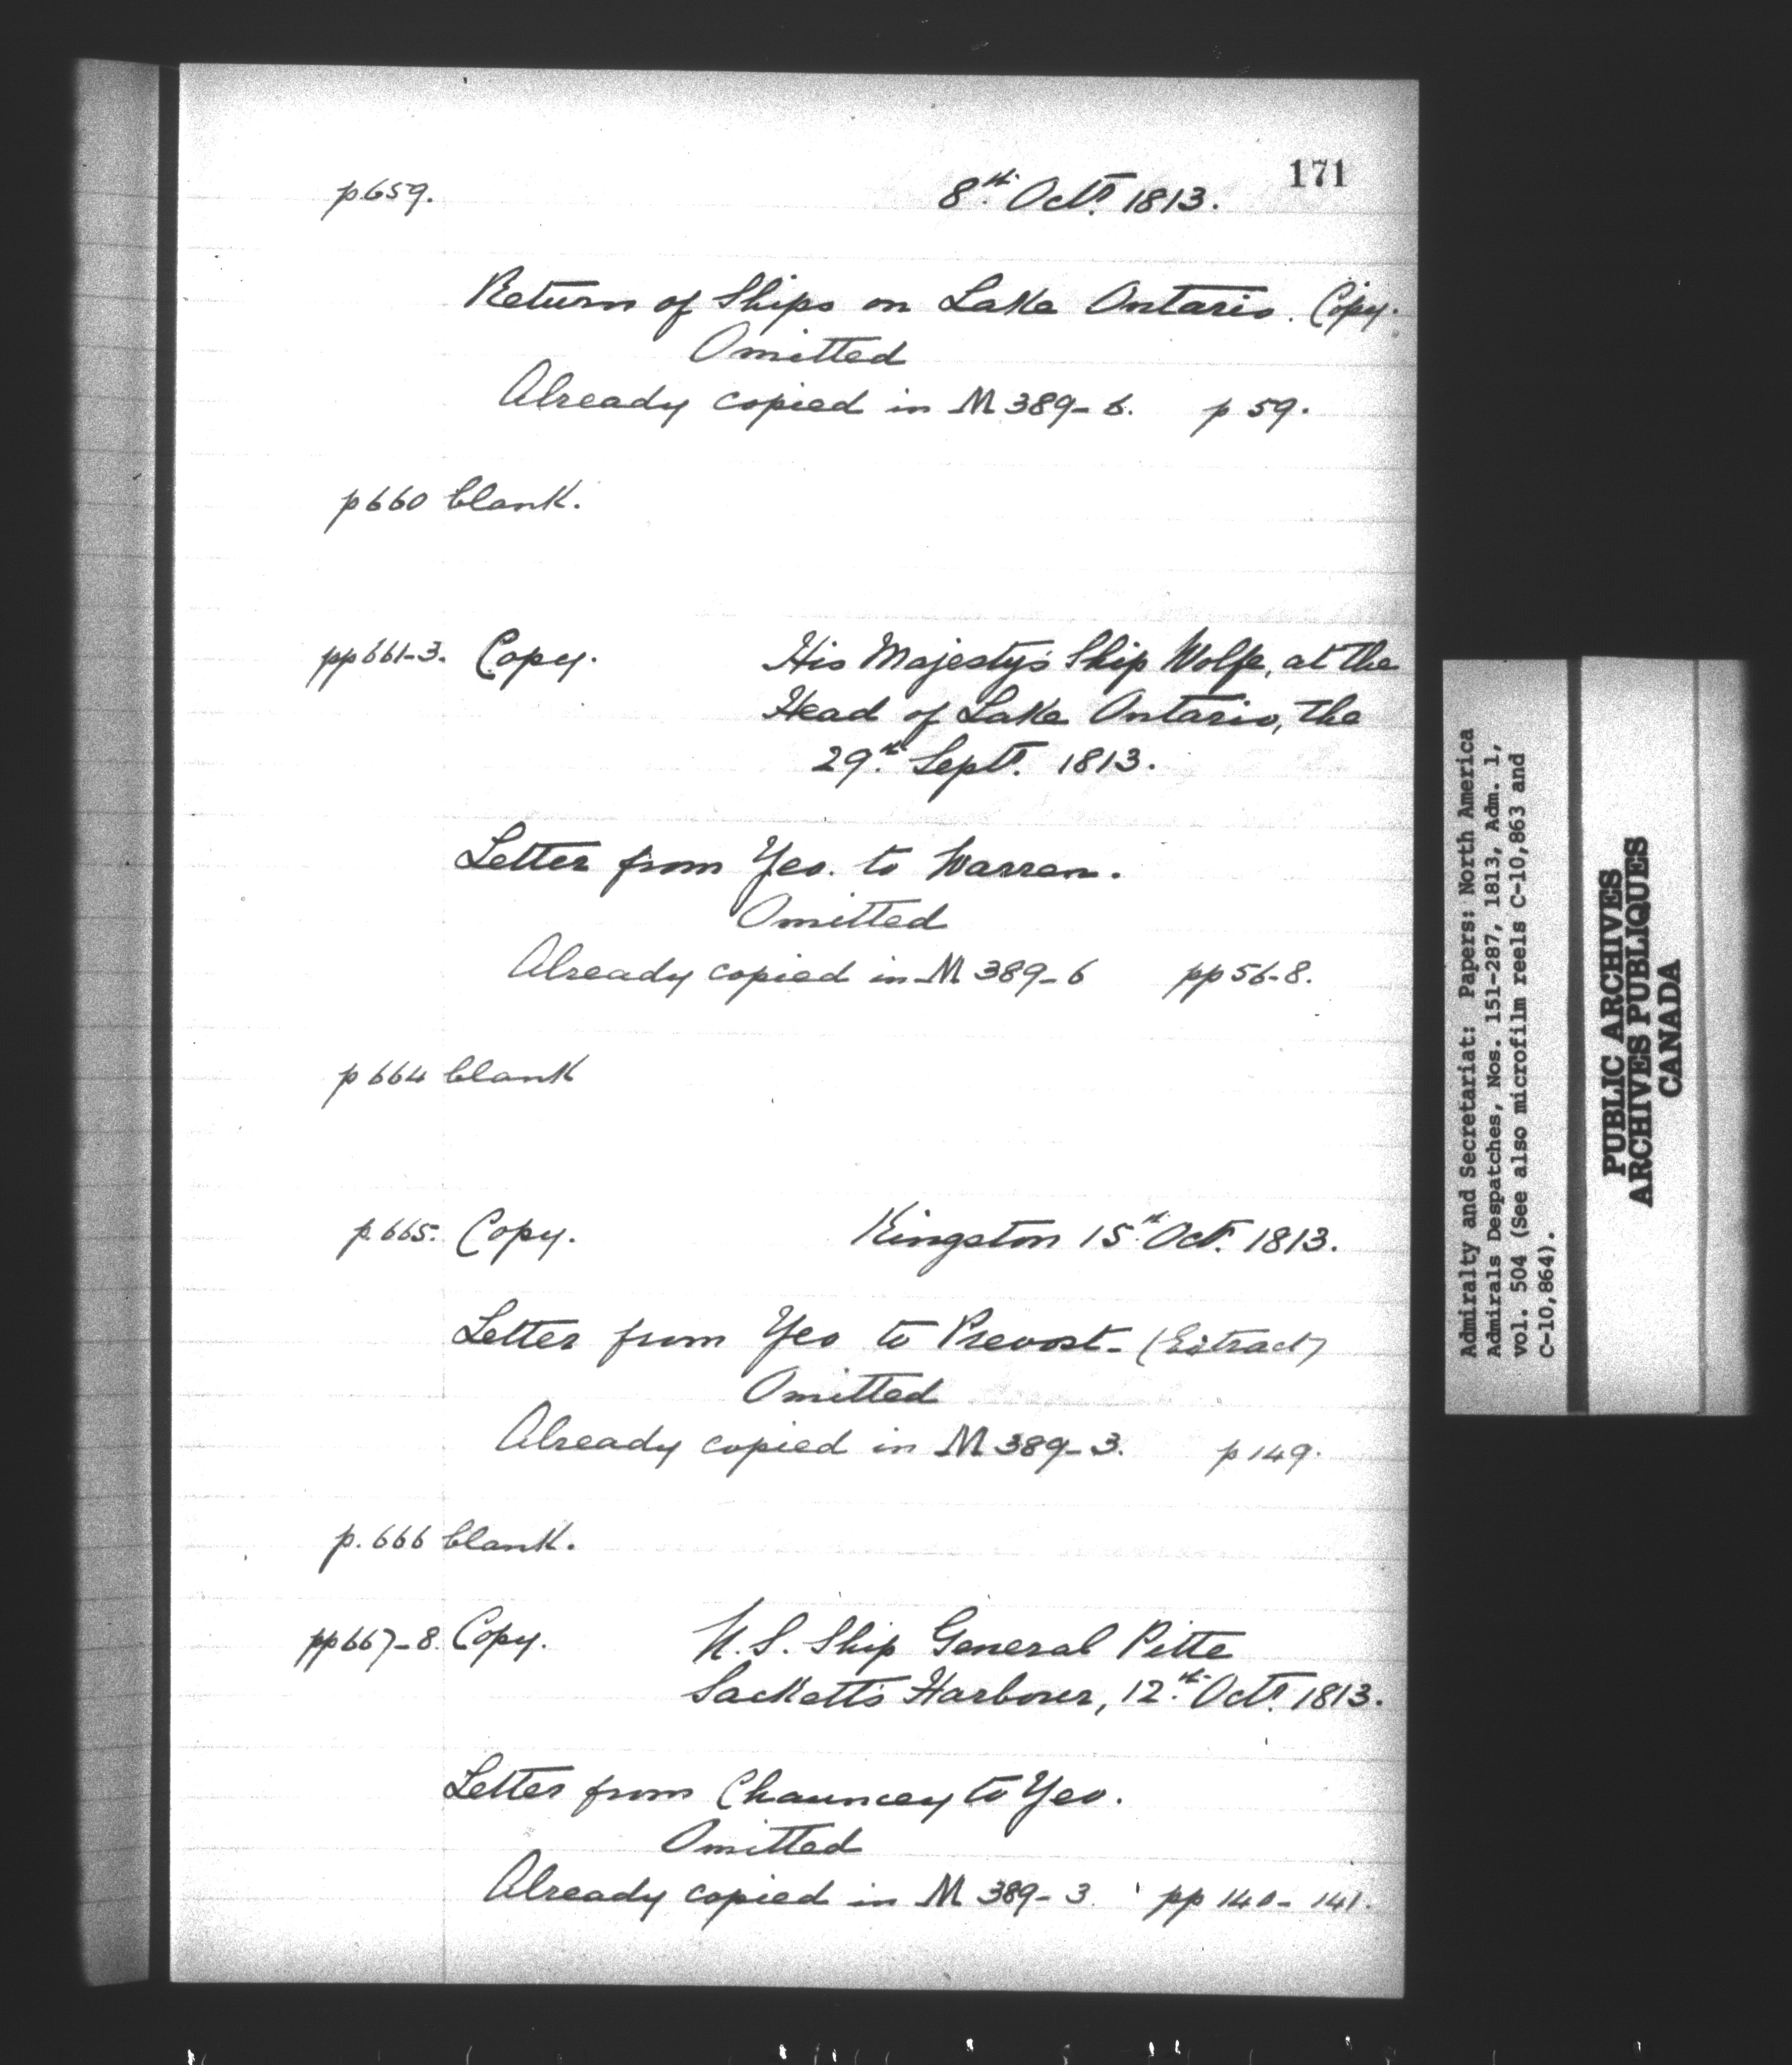 171
p659. 8th Octr. 1813.
Return of Ships on Lake Ontario. Copy.
Omitted
Already copied in M 389-6. p 59.
p660 blank.
pp661-3. Copy. His Majesty's Ship Wolfe, at the
Head of Lake Ontario, the
29th Septr. 1813.
Letter from Yeo. to Warren.
Omitted
Already copied in M 389-6 pp 56-8.
p664 blank
p.665. Copy. Kingston 15th Octr. 1813.
Letter from Yeo to Prevost- (Extract)
Omitted
Already copied in M 389-3. p 149.
p.666 blank.
pp667-8. Copy. U.S. Ship General Pitte
Sacketts Harbour, 12th Octr. 1813.
Letter from Chauncey to Yeo.
Omitted
Already copied in M 389-3. pp 140-141.
Admiralty and Secretariat: Papers: North America
Admirals Despatches, Nos. 151-287, 1813, Adm. 1,
vol. 504 (See also microfilm reels C-10,863 and
C-10,864).
PUBLIC ARCHIVES
ARCHIVES PUBLIQUES
CANADA